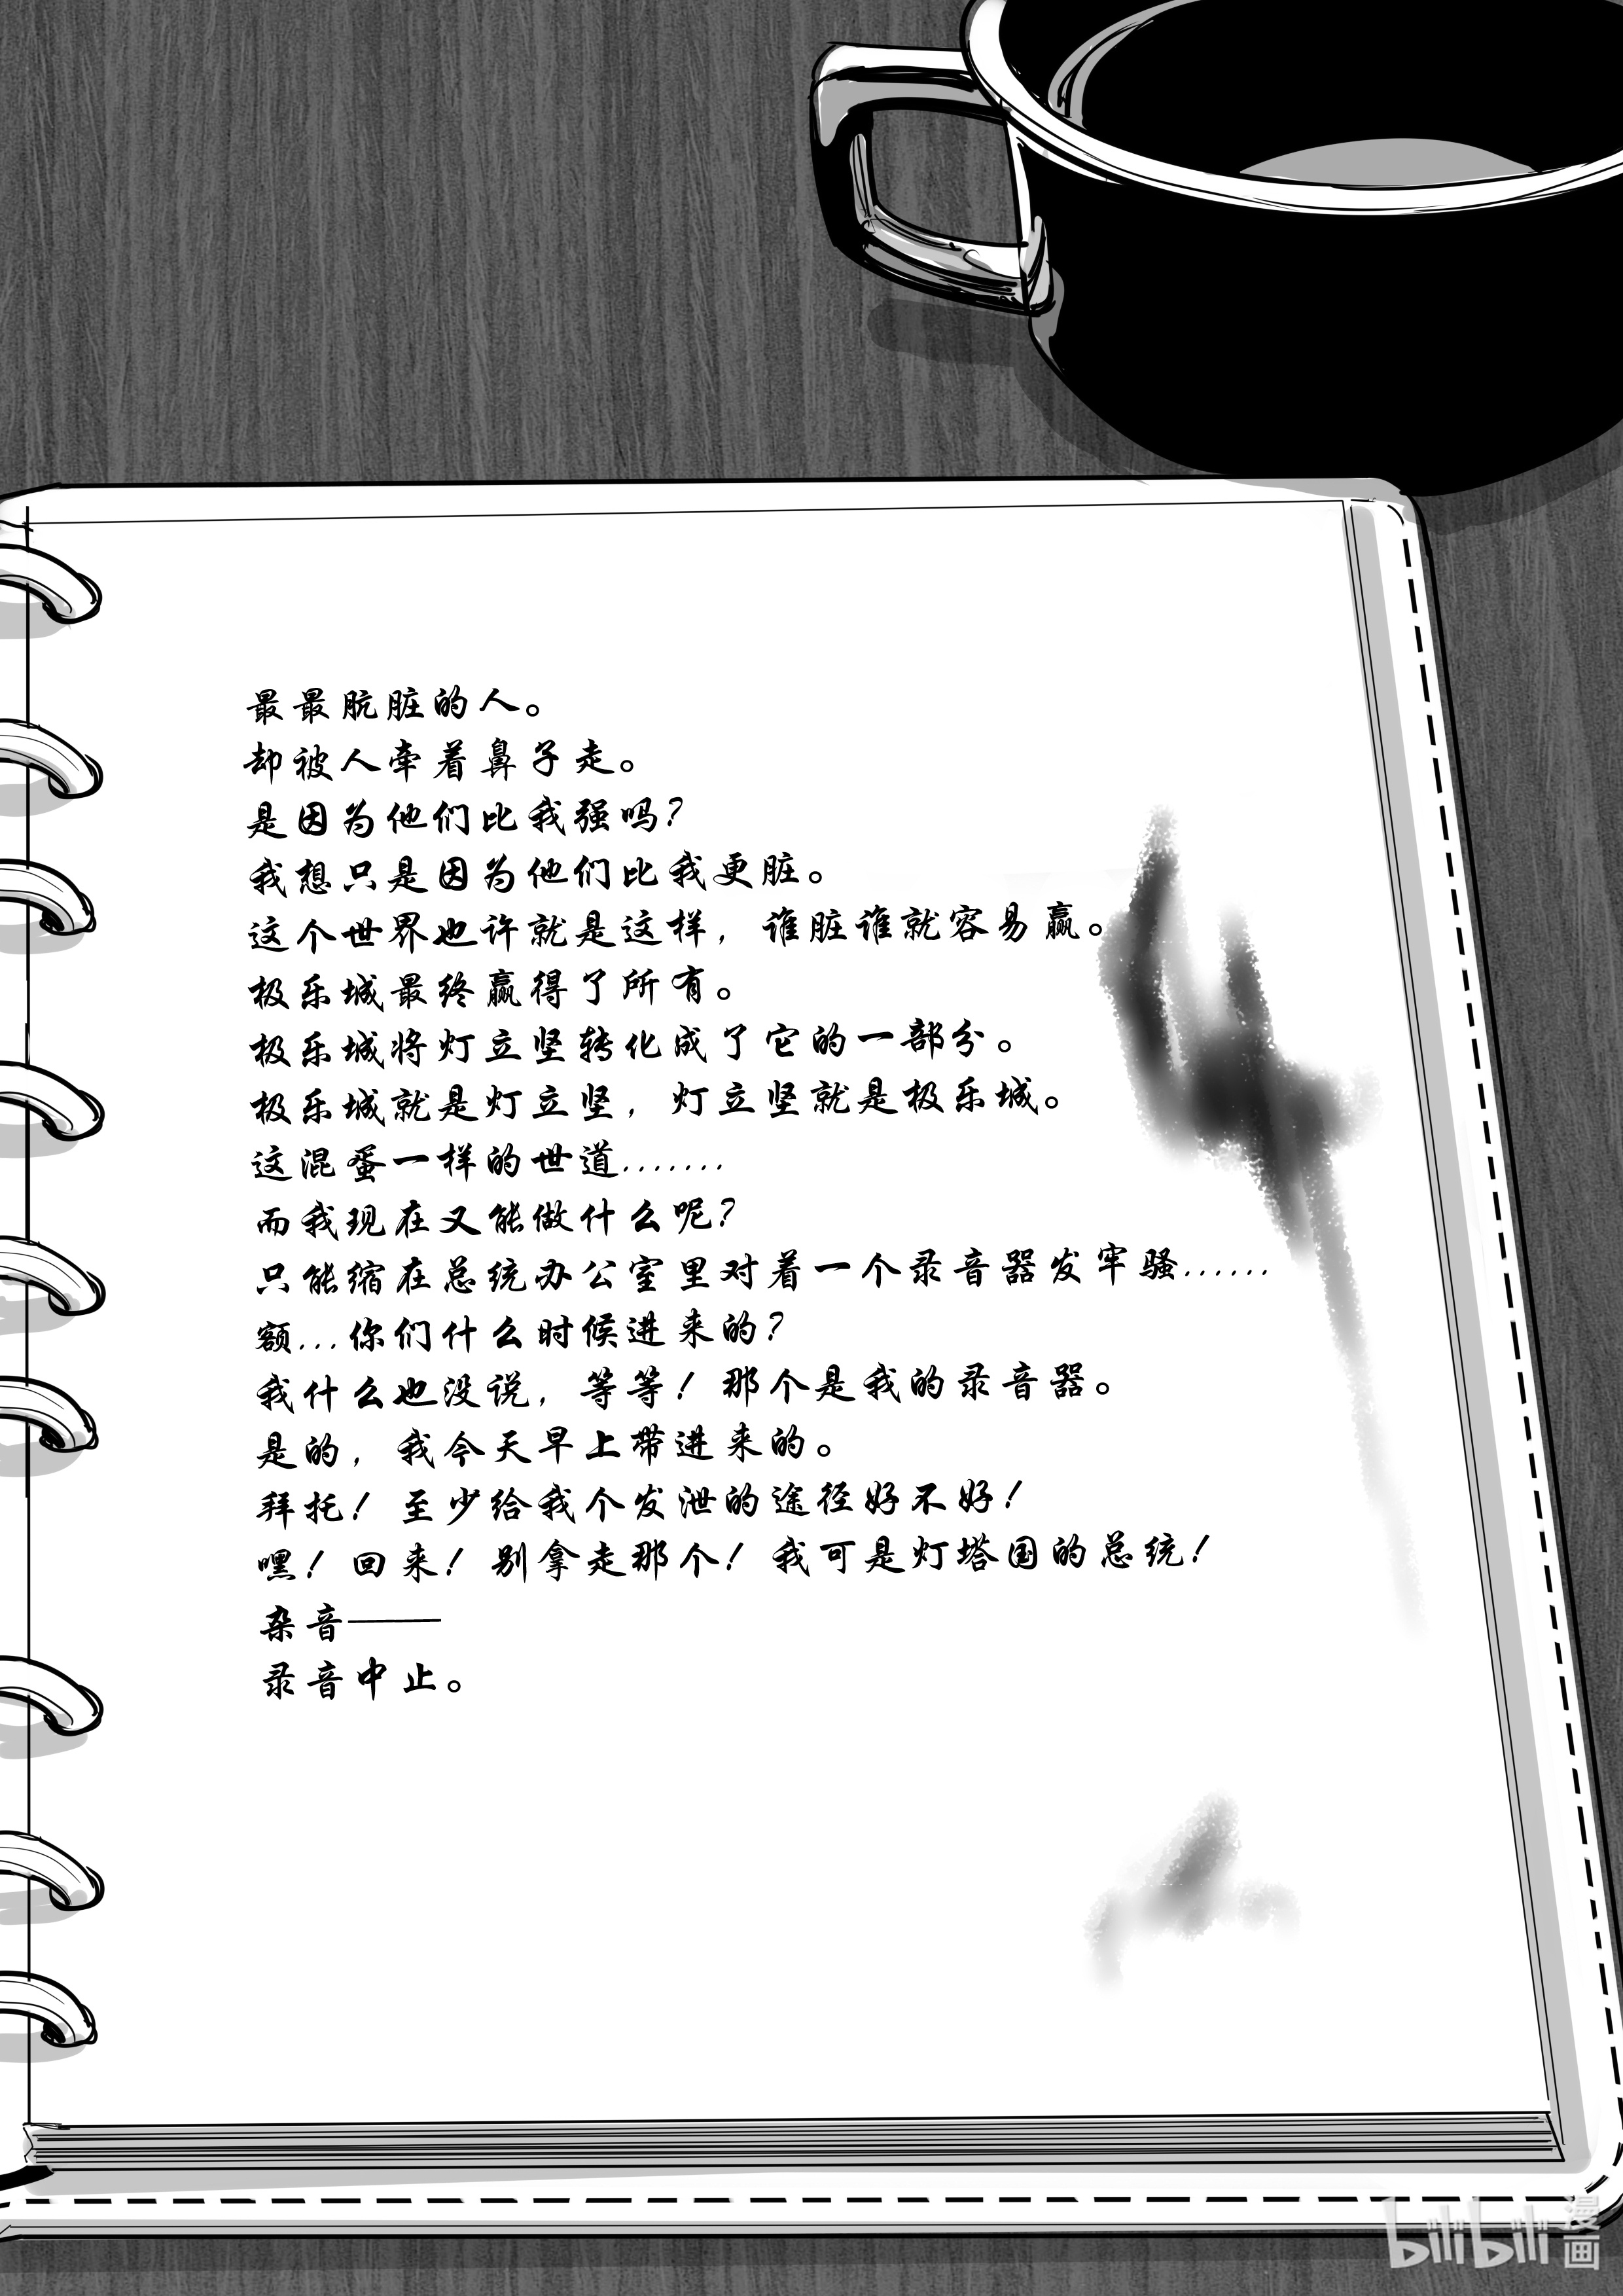 最最肮脏的人。
却被人牵着鼻子走。
是因为他们比我强吗？
我想只是因为他们比我更脏。
这个世界也许就是这样，谁脏谁就容易赢。
极乐城最终赢得了所有。
极乐城将灯立坚转化成了它的一部分。
极乐城就是灯立坚，灯立坚就是极乐城。
这混蛋一样的世道.......
而我现在又能做什么呢？
只能缩在总统办公室里对着一个录音器发牢骚......
额...你们什么时候进来的？
我什么也没说，等等！那个是我的录音器。
是的，我今天早上带进来的。
拜托！至少给我个发泄的途径好不好！
嘿！回来！别拿走那个！我可是灯塔国的总统！
杂音——
录音中止。
bilibili 漫画